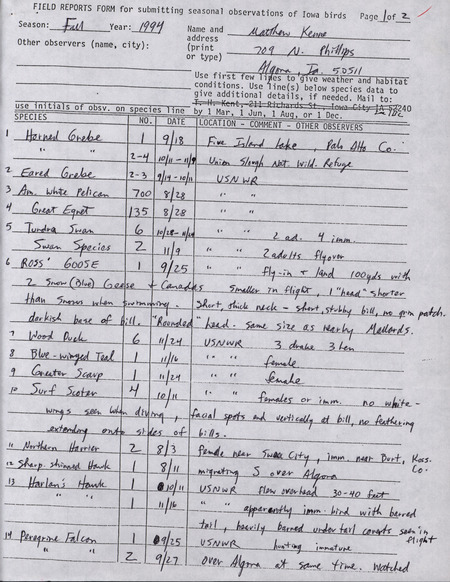 FIELD REPORTS FORM for submitting seasonal observations of Iowa birds Page 1 of 2
Season: Fall Year: 1994 Name and address (print or type) Matthew Kenne
Other observers (name, city): 709 N. Phillips
Algona, Ia. 50511
Use first few lines to give weather and habitat
conditions. Use line(s) below species data to
give additional details, if needed. Mail to:
T. H. Kent, 211 Richards St., Iowa City IA 52240
use initials of obsv. on species line by 1 Mar, 1 Jun, 1 Aug, or 1 Dec.
SPECIES NO. DATE LOCATION - COMMENT - OTHER OBSERVERS
1 Horned Grebe 1 9/18 Five Island Lake, Palo Alto Co.
" " 2-4 10/11-11/9 Union Slough Nat. Wild. Refuge
2 Eared Grebe 2-3 9/14-10/11 USNWR
3 Am. White Pelican 700 8/28 " "
4 Great Egret 135 8/28 " "
5 Tundra Swan 6 " " 2 ad. 4 imm.
Swan Species 2 11/9 " " 2 adults flyover
6 ROSS' GOOSE 1 9/25 " " fly-in & land 100yds with
2 Snow (Blue) Geese & Canadas smaller in flight, 1 "head" shorter
than Snows when swimming. Short, thick neck - short, stubby bill, no grin patch.
darkish base of bill. "Rounded" head. same size as nearby Mallards.
7 Wood Duck 6 11/24 USNWR 3 drake 3 hen
8 Blue-winged Teal 1 11/16 " " female
9 Greater Scaup 1 11/24 " " female
10 Surf Scoter 4 10/11 " " females or imm. no white-
wings seen when diving, facial spots and vertically at bill, no feathering
extending onto sides of bills.
11 Northern Harrier 2 8/3 female near Swea City, imm. near Burt, Koss. Co.
12 Sharp-shinned Hawk 1 8/11 migrating S over Algona
13 Harlan's Hawk 1 10/11 USNWR flew overhead 30-40 feet
" " 1 11/16 " " apparently imm. bird with barred
tail, heavily barred under tail coverts seen in flight
14 Peregrine Falcon 1 9/25 USNWR hunting immature
" " 2 9/27 over Algona at same time. Watched